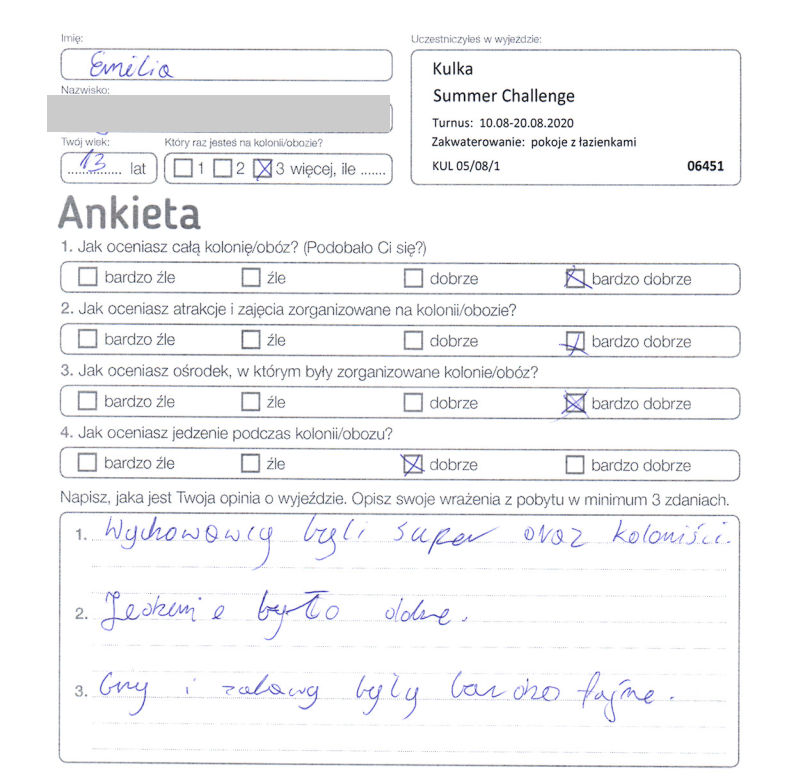 Imię:
Emilia
Nazwisko:
Twój wiek:
13 lat
Który raz jesteś na kolonii/obozie?
1 2 3 więcej, ile .......
Uczestniczyłeś w wyjeździe:
Kulka
Summer Challenge
Turnus: 10.08-20.08.2020
Zakwaterowanie: pokoje z łazienkami
KUL 05/08/1 06451
Ankieta
1. Jak oceniasz całą kolonię/obóz? (Podobało Ci się?)
bardzo źle źle dobrze bardzo dobrze
2. Jak oceniasz atrakcje i zajęcia zorganizowane na kolonii/obozie?
bardzo źle źle dobrze bardzo dobrze
3. Jak oceniasz ośrodek, w którym były zorganizowane kolonie/obóz?
bardzo źle źle dobrze bardzo dobrze
4. Jak oceniasz jedzenie podczas kolonii/obozu?
bardzo źle źle dobrze bardzo dobrze
Napisz, jaka jest Twoja opinia o wyjeździe. Opisz swoje wrażenia z pobytu w minimum 3 zdaniach.
1. Wychowawcy byli super oraz koloniści.
2. Jedzenie było dobre.
3. Gry i zabawy były bardzo fajne.